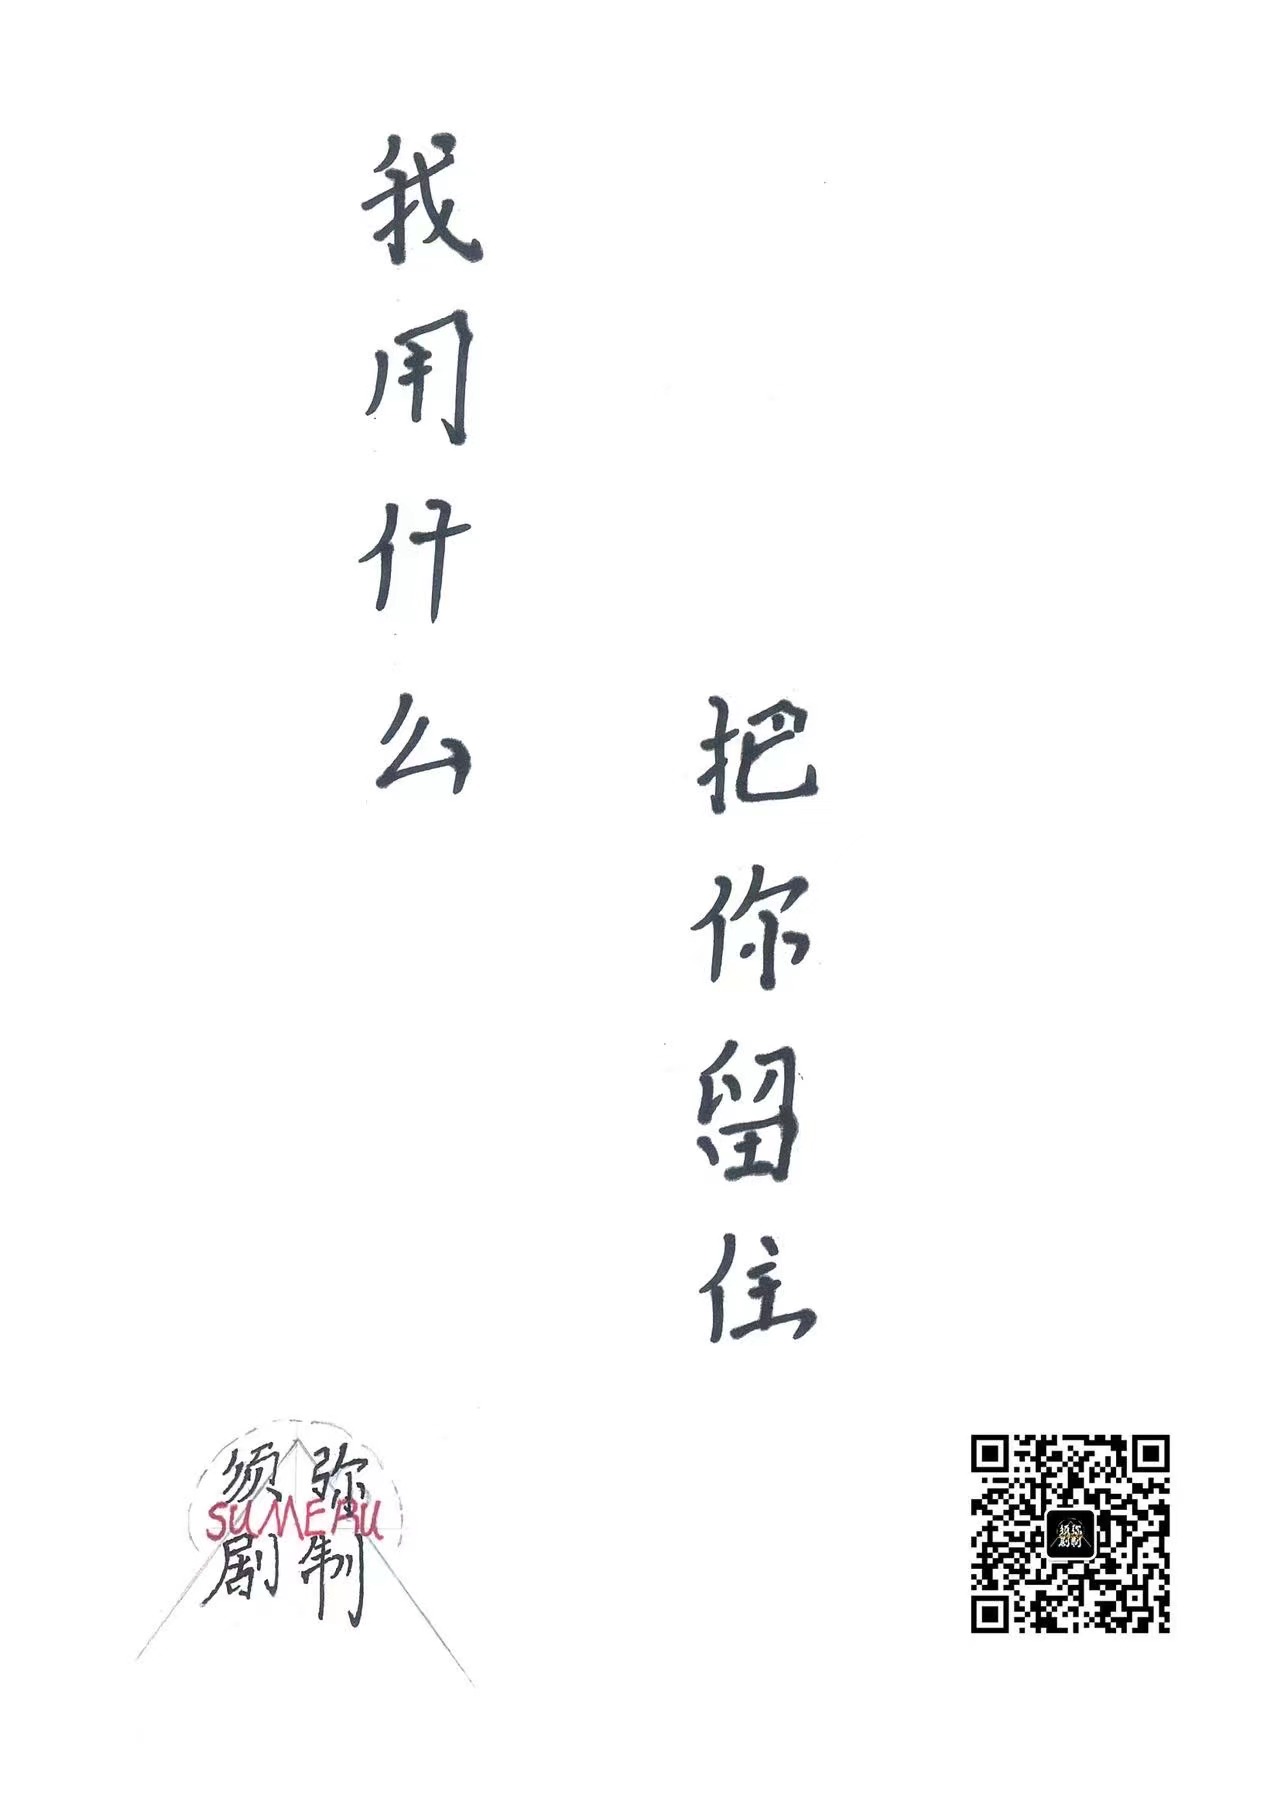 我用什么
把你留住
须弥
SUMERU
剧制